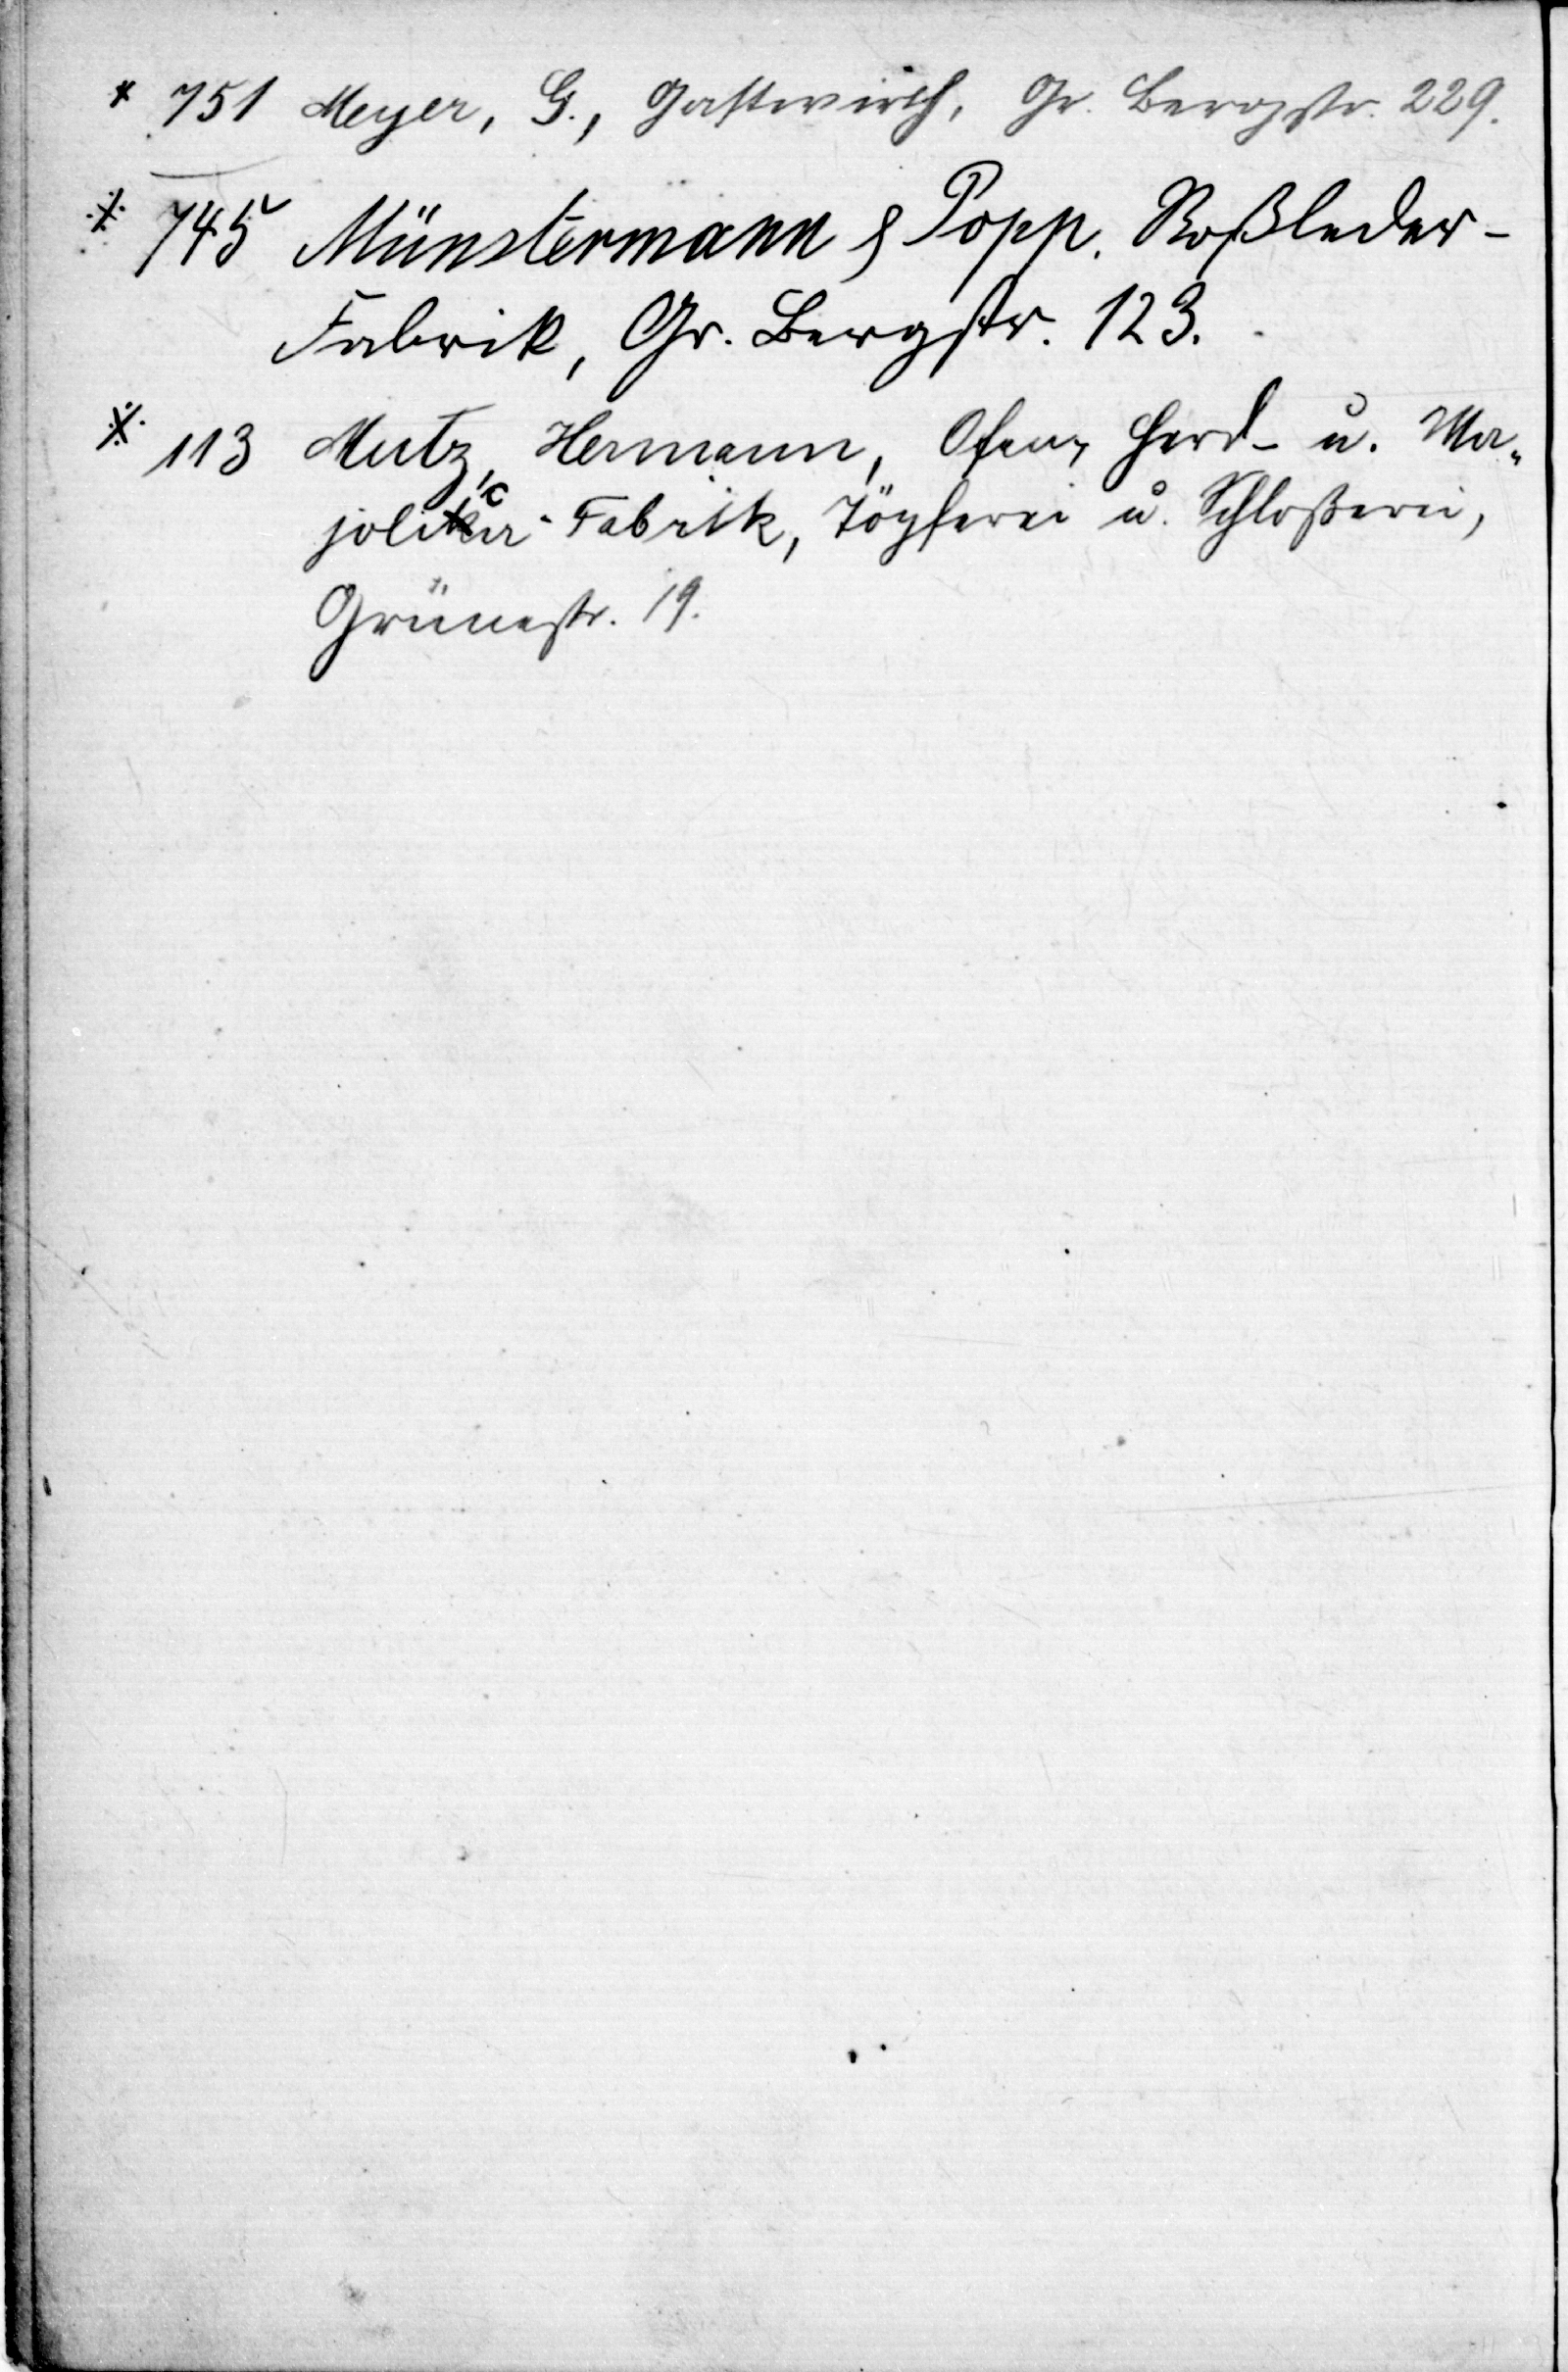 * 751 Meyer, G., Gastwirth, Gr. Bergstr. 229.
※ 745 Münstermann & Popp. Roßleder-
Fabrik, Gr. Bergstr. 123.
※ 113 Mutz, Hermann, Ofen-, Herd- u. Ma-
jolica-Fabrik, Töpferei u. Schloßerei,
Grünestr. 19.